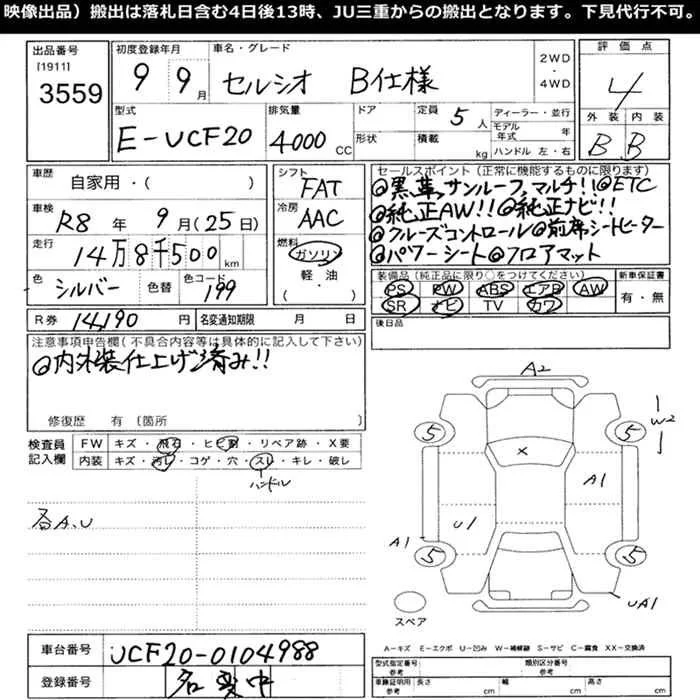 映像出品）搬出は落札日含む4日後13時、JU三重からの搬出となります。下見代行不可。
出品番号
[1911]
3559
初度登録年月
9 9月
車名・グレード
セルシオ B仕様
2WD
・
4WD
評価点
4
型式
E-UCF20
排気量
4000cc
ドア
形状
定員 5人
積載 kg
ディーラー・並行
モデル年式 年
ハンドル 左・右
外装 内装
B B
車歴
自家用・( )
シフト
FAT
車検
R8年 9月(25日)
冷房
AAC
走行
14万8千500km
燃料
ガソリン
軽・油
( )
色
シルバー
色替
色コード
199
セールスポイント(正常に機能するものに限ります)
@黒革,サンルーフ,マルチ!!@ETC
@純正AW!!@純正ナビ!!
@クルーズコントロール@前席シートヒーター
@パワーシート@フロアマット
装備品(純正品に限り○をつけてください)
PS PW ABS エアB AW
SR ナビ TV カワ
新車保証書
有・無
R券 14,190円
名変通知期限 月 日
後日品
注意事項申告欄(不具合内容等は具体的に記入して下さい)
@内外装仕上げ済み!!
修復歴 有〔箇所
検査員
記入欄
FW キズ・飛石・ヒビ割・リペア跡・X要
内装 キズ・汚レ・コゲ・穴・スレ・キレ・破レ
ハンドル
各A.U
A2
5
5
W2
X
A1
U1
A1
5
5
UA1
スペア
車台番号
UCF20-0104988
登録番号
名変中
A-キズ E-エクボ U-凹み W-補修跡 S-サビ C-腐食 XX-交換済
型式指定番号
参考
類別区分番号
参考
車輌証明用
参考
長さ cm
幅 cm
高さ cm